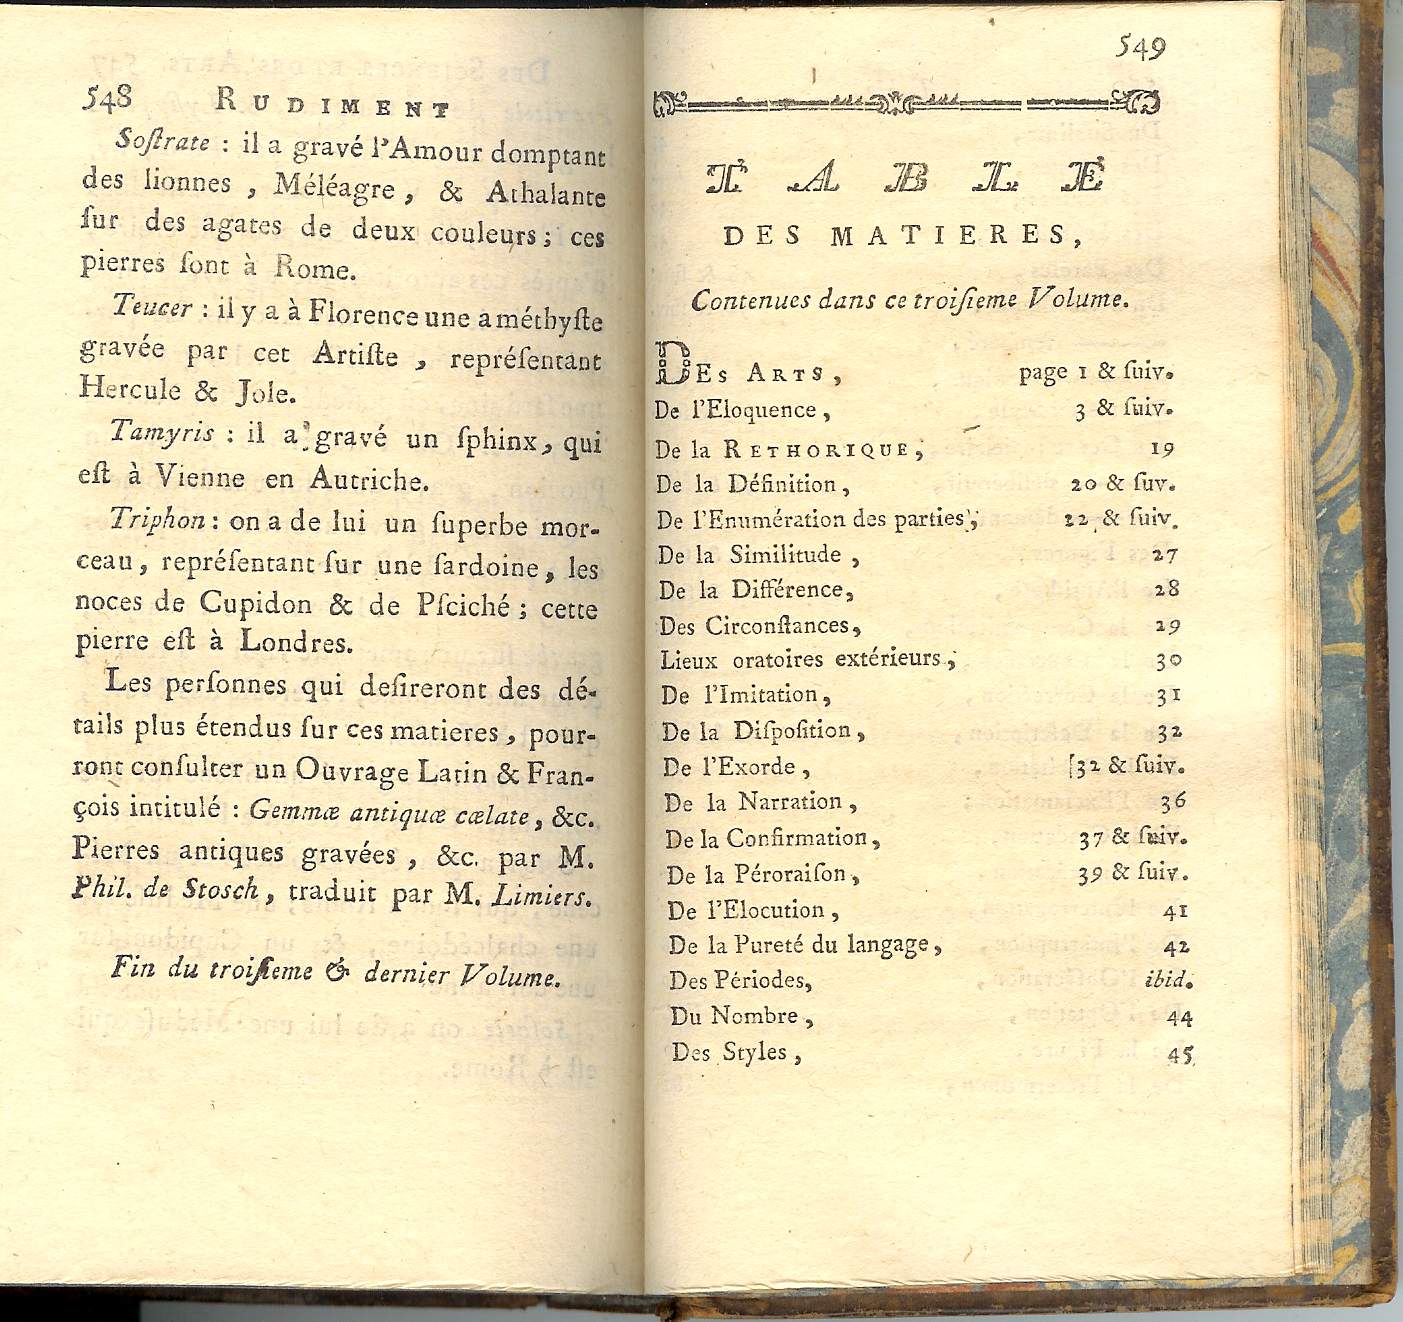 548 RUDIMENT
Soſtrate : il a gravé l'Amour domptant
des lionnes , Méléagre , & Athalante
ſur des agates de deux couleurs ; ces
pierres ſont à Rome.
Teucer : il y a à Florence une améthyſte
gravée par cet Artiſte , repréſentant
Hercule & Jole.
Tamyris : il a gravé un ſphinx, qui
eſt à Vienne en Autriche.
Triphon : on a de lui un ſuperbe mor-
ceau, repréſentant ſur une ſardoine, les
noces de Cupidon & de Pſciché ; cette
pierre eſt à Londres.
Les perſonnes qui deſireront des dé-
tails plus étendus ſur ces matieres , pour-
ront conſulter un Ouvrage Latin & Fran-
çois intitulé : Gemmæ antiquæ cælate, &c.
Pierres antiques gravées , &c. par M.
Phil. de Stosch, traduit par M. Limiers.
Fin du troiſieme & dernier Volume.
549
TABLE
DES MATIERES,
Contenues dans ce troiſieme Volume.
DES ARTS, page 1 & ſuiv.
De l'Eloquence, 3 & ſuiv.
De la RETHORIQUE, 19
De la Définition, 20 & ſuv.
De l'Enumération des parties, 22 & ſuiv.
De la Similitude, 27
De la Différence, 28
Des Circonſtances, 29
Lieux oratoires extérieurs, 30
De l'Imitation, 31
De la Diſpoſition, 32
De l'Exorde, [32 & ſuiv.
De la Narration, 36
De la Confirmation, 37 & ſuiv.
De la Péroraiſon, 39 & ſuiv.
De l'Elocution, 41
De la Pureté du langage, 42
Des Périodes, ibid.
Du Nombre, 44
Des Styles, 45